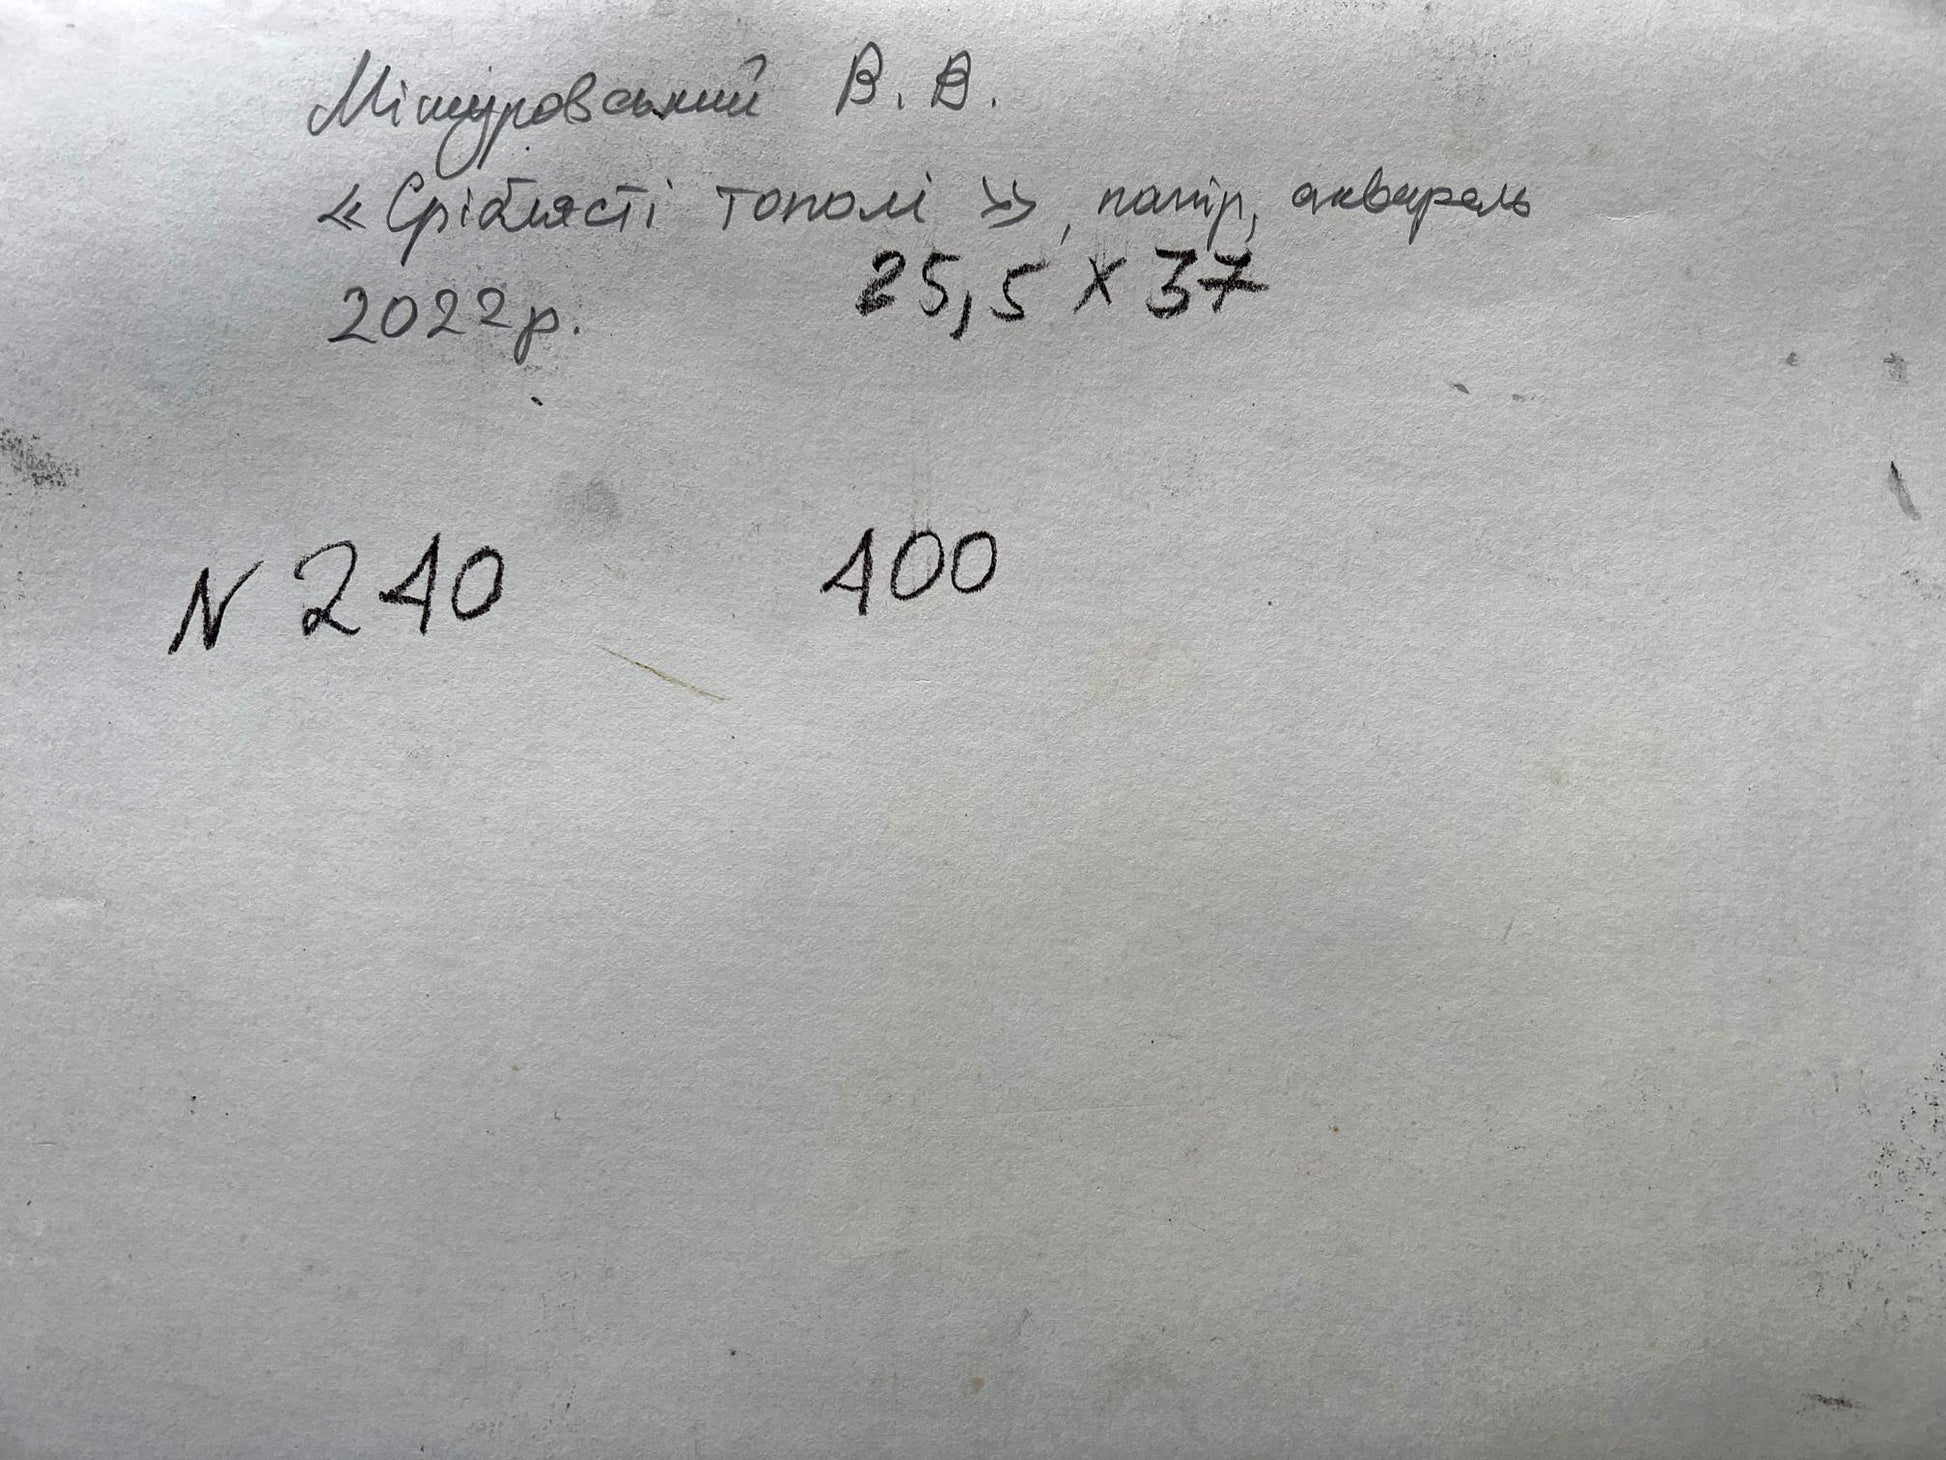 Мішуровський В. В.
«Сріблясті тополі», папір, акварель
2022р. 25,5 x 37
N 240 400